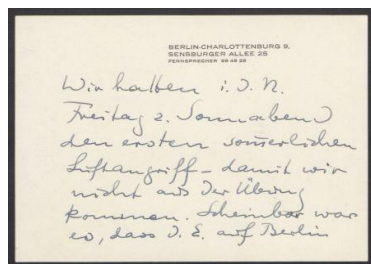 BERLIN-CHARLOTTENBURG 9,
SENSBURGER ALLEE 26
FERNSPRECHER
Wir hatten i. d. N.
Freitag z. Sonnabend
den ersten sommerlichen
Luftangriff – damit wir
nicht aus der Übung
kommen. Scheinbar war
es, dass d. E. auf Berlin